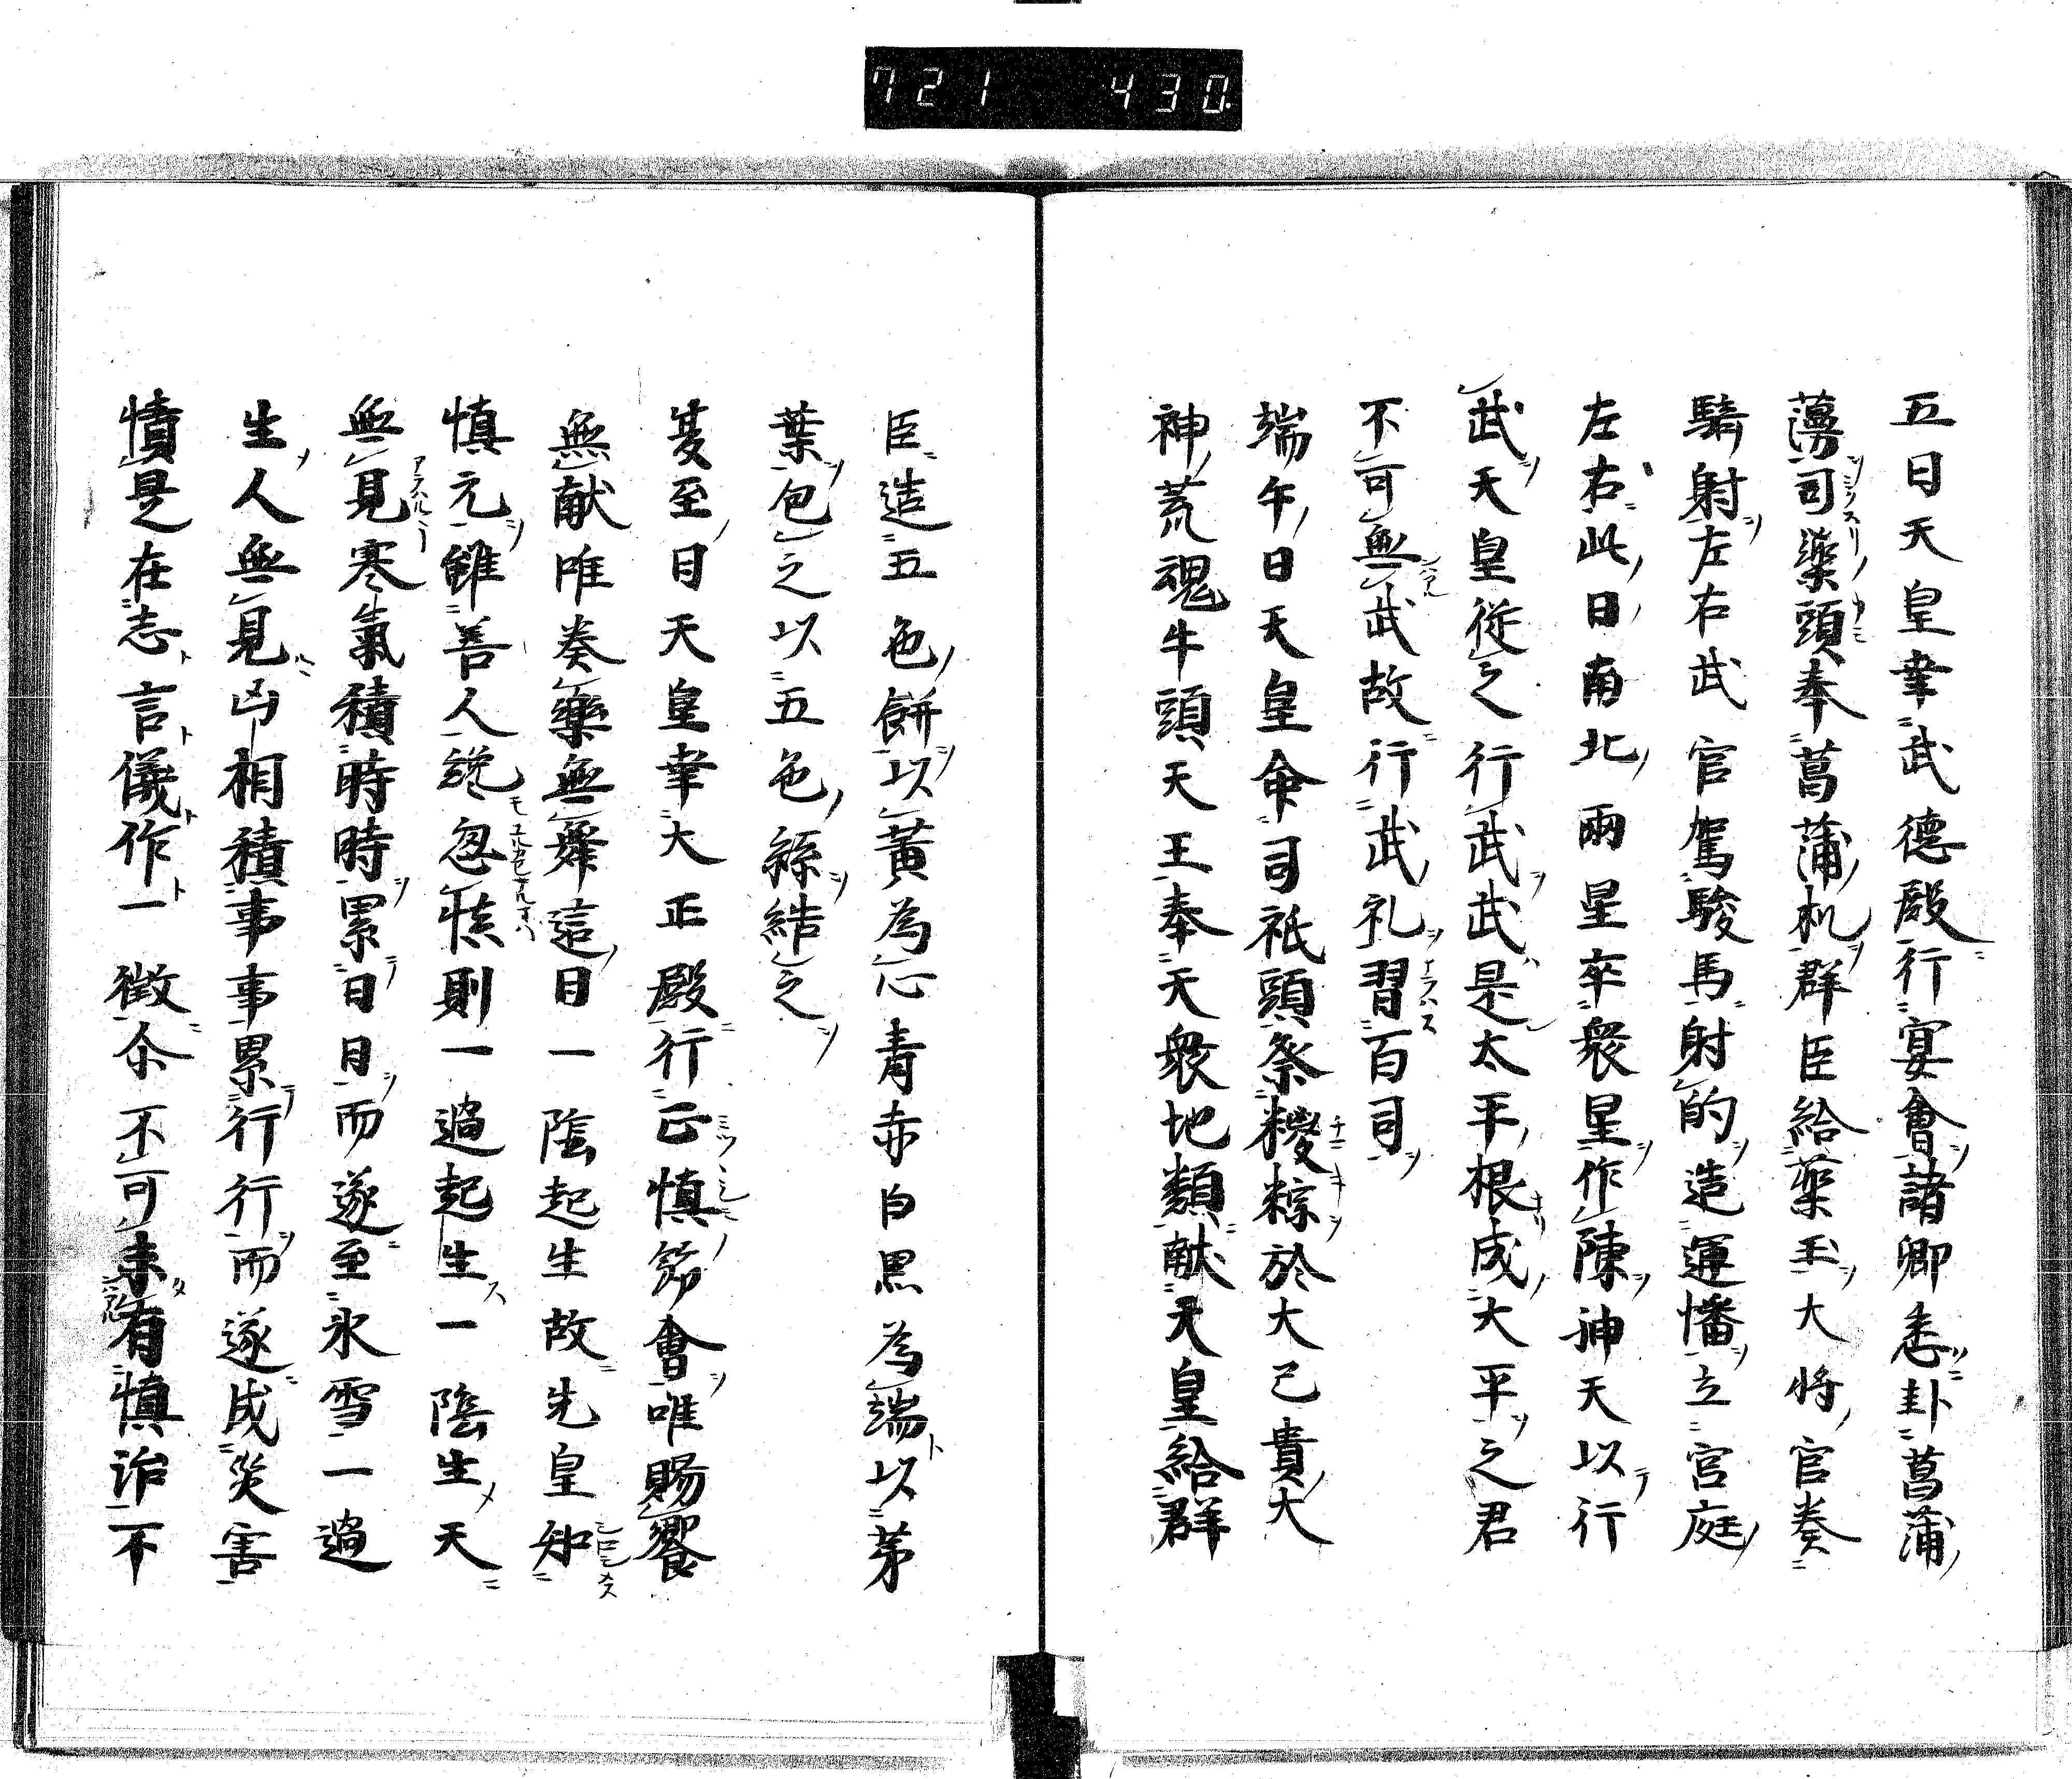 721 430
五日天皇幸武徳殿行宴會諸卿悉卦菖蒲
蘰司薬頭奉菖蒲机群臣給薬玉大将官奏
騎射左右武官駕駿馬射的造運幡立宮庭
左右此日南北兩星卒衆星作陳神天以行
武天皇従之行武武是太平根成大平之君
不可無武故行武礼習百司
端午日天皇命司祇頭祭糉粽於大己貴大
神荒魂牛頭天王奉天衆地類献天皇給群
臣造五色餅以黄為心青赤白黒為端以茅
葉包之以五色絲結之
夏至日天皇幸大正殿行正慎節會唯賜饗
無献唯奏藥無舞這日一陰起生故先皇知
慎元雖善人纔忽慎則一過起生一陰生天
無見寒氣積時時累日日而遂至氷雪一過
生人無見凶相積事事累行行而遂成災害
慎是在志言儀作一徴尒不可未有慎治不